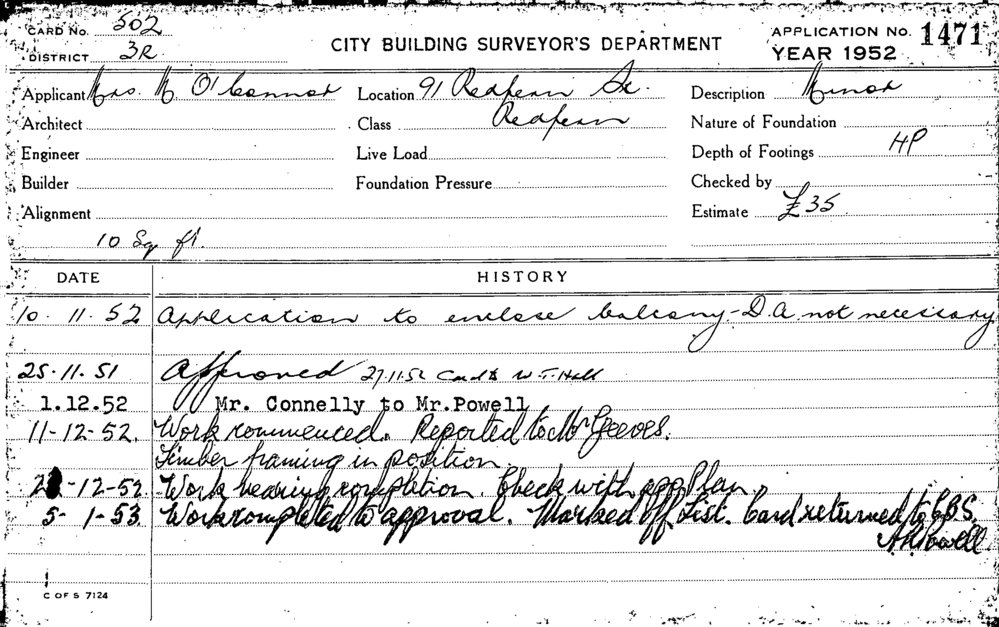 CARD NO. 502
DISTRICT 3R
CITY BUILDING SURVEYOR'S DEPARTMENT
APPLICATION NO. 1471
YEAR 1952
Applicant Mrs. M O'Connor Location 91 Redfern St. Description Minor
Architect Class Redfern Nature of Foundation
Engineer Live Load Depth of Footings HP
Builder Foundation Pressure Checked by
Alignment Estimate £35
10 Sq ft.
DATE HISTORY
10. 11. 52 Application to enclose balcony - D.A. not necessary
25.11.51 Approved 27.11.52 Card to W.T. Hall
1.12.52 Mr. Connelly to Mr.Powell
11-12-52. Work commenced. Reported to Mr Geeves.
Timber framing in position
-12-52. Work nearing completion. Check with app Plan.
5-1-53. Work completed to approval. Marked off List. Card returned to C.B.S.
A.R. Powell
C OF S 7124